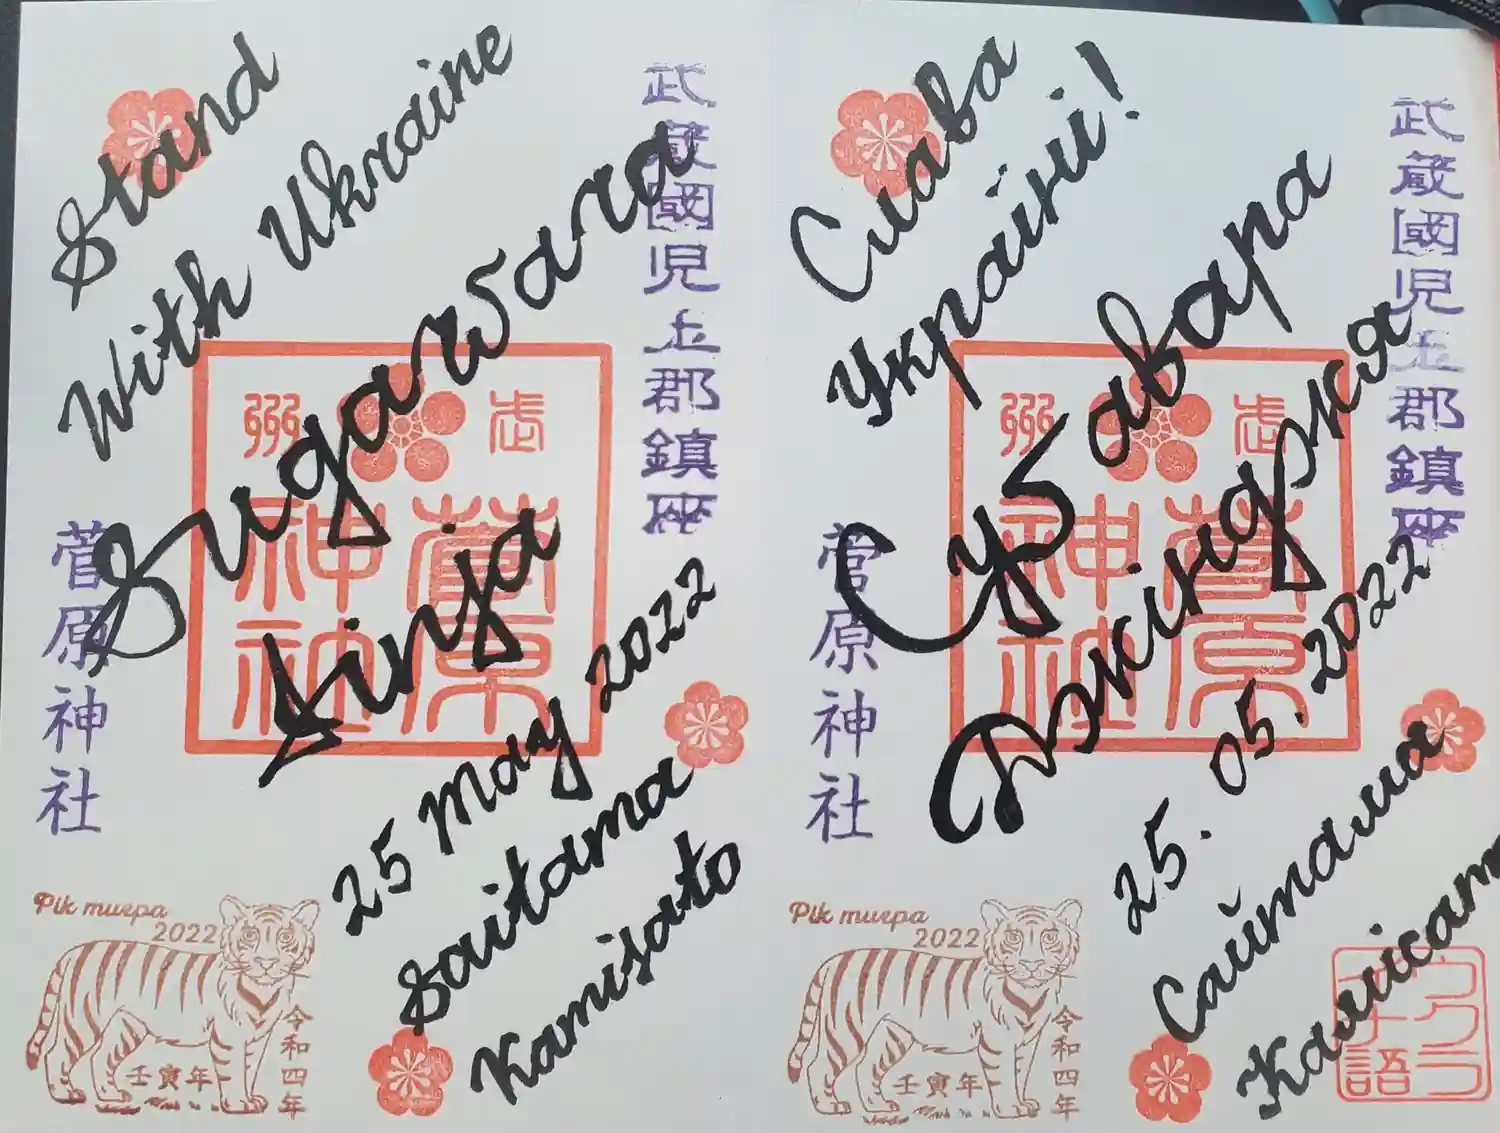 Stand
With Ukraine
武蔵國児玉郡鎮座
Sugawara
Jinja
武
州
菅原
神社
菅原神社
25 May 2022
Saitama
Kamisato
Рік тигра
2022
令和四年
壬寅年
Слава
Україні!
武蔵國児玉郡鎮座
Суґавара
Джінджя
武
州
菅原
神社
菅原神社
25.05.2022
Сайтама
Камісат
Рік тигра
2022
令和四年
壬寅年
ウクラ
イナ語